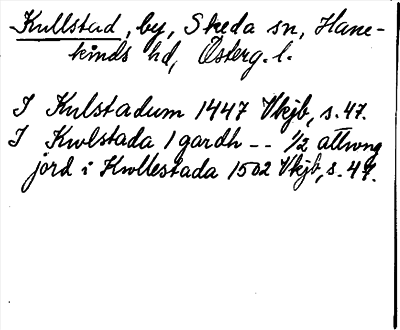 Kullstad, by, Skeda sn, Hane-
kinds hd, Österg. l.
I Kulstadum 1447 Vkjb, s. 47.
I Kwlstada 1 gardh -- 1/2 attwng
jord i Kwllestada 1502 Vkjb, s. 47.